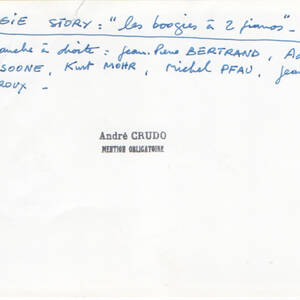 GIE STORY : "les boogies à 2 pianos" -
anche à droite : Jean-Pierre BERTRAND,
SOONE, Kurt MOHR, Michel PFAU, Jean
ROUX -
André CRUDO
MENTION OBLIGATOIRE